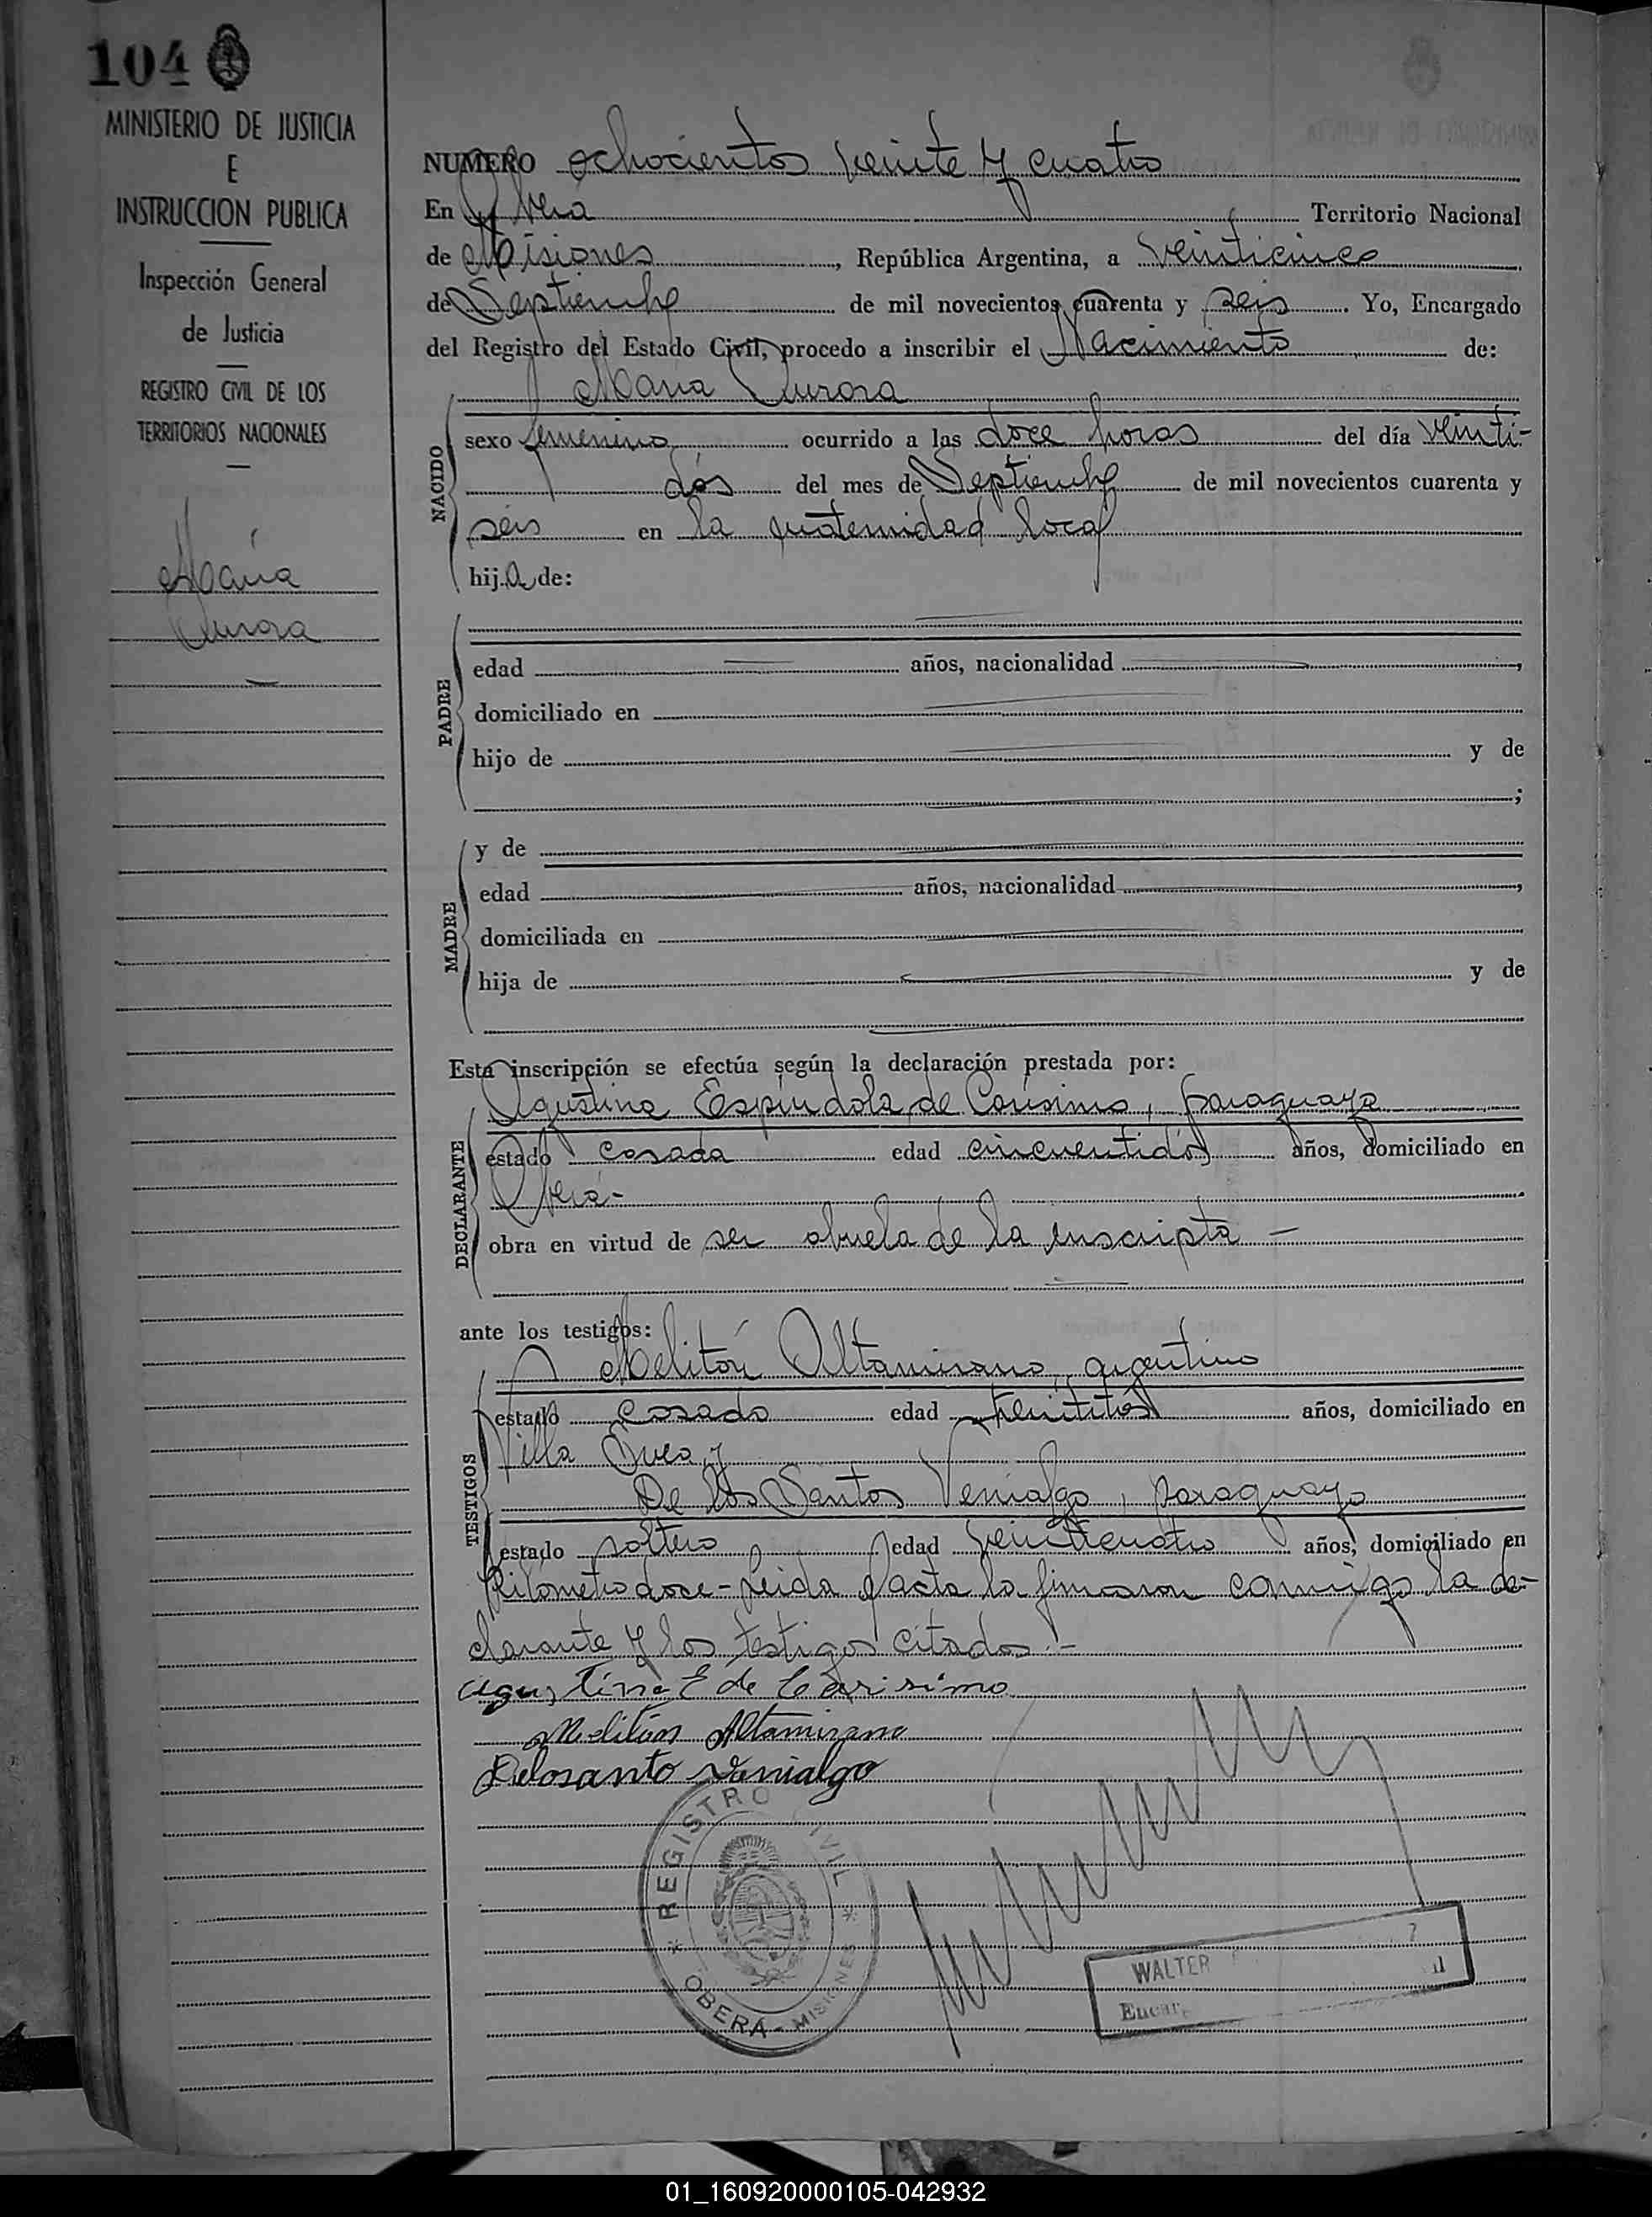 104
MINISTERIO DE JUSTICIA
E
INSTRUCCION PUBLICA
Inspección General
de Justicia
REGISTRO CIVIL DE LOS
TERRITORIOS NACIONALES
María
Aurora
NUMERO ochocientos veinte y cuatro
En Oberá Territorio Nacional
de Misiones, República Argentina, a veinticinco
de Septiembre de mil novecientos cuarenta y seis. Yo, Encargado
del Registro del Estado Civil, procedo a inscribir el Nacimiento de:
María Aurora
NACIDO
sexo femenino ocurrido a las doce horas del día veinti-
dós del mes de Septiembre de mil novecientos cuarenta y
seis en la maternidad local
hija de:
PADRE
edad años, nacionalidad ,
domiciliado en
hijo de y de
;
MADRE
y de
edad años, nacionalidad ,
domiciliada en
hija de y de
Esta inscripción se efectúa según la declaración prestada por:
DECLARANTE
Agustina Espíndola de Carísimo, paraguaya
estado casada edad cincuentidós años, domiciliado en
Oberá.-
obra en virtud de ser abuela de la inscripta -
ante los testigos:
TESTIGOS
Melitón Altamirano, argentino
estado casado edad años, domiciliado en
Villa y
De los Santos Venialgo, paraguayo
estado soltero edad veinticuatro años, domiciliado en
Kilómetro doce - Leida el acta la firmaron conmigo la de-
clarante y los testigos citados.-
Agustina E de Carisimo
Melitón Altamirano
Delosanto Venialgo
REGISTRO CIVIL
* OBERA - MISIONES *
WALTER
Encar
01_160920000105-042932